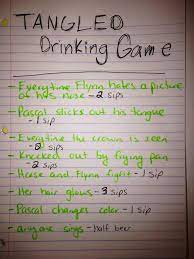 TANGLED
Drinking Game
- Everytime Flynn hates a picture
of his nose - 2 sips
- Pascal sticks out his tongue
- 1 sip
- Everytime the crown is seen
- 2 sips
- Knocked out by frying pan
- 2 sips
- Horse and Flynn fight - 1 sip
- Her hair glows - 3 sips
- Pascal changes color - 1 sip
- anyone sings - half beer